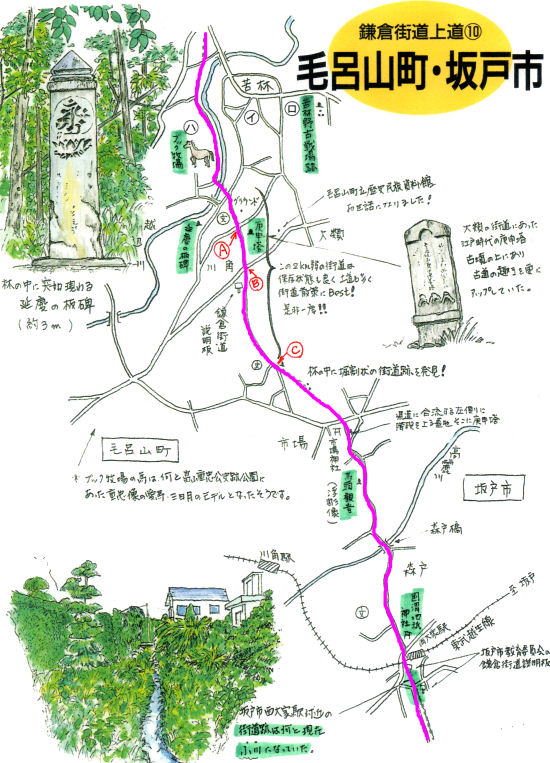 鎌倉街道上道⑩
毛呂山町・坂戸市
苦林
イ
ロ
ハ
苦林野古戦場跡
ブック牧場
毛呂山町立歴史民俗資料館
お世話になりました!
グラウンド
文
庚申塔
大類
延慶の板碑
A
川角
B
越
川
鎌倉街道
説明板
この2km弱の街道は
保存状態も良く上道も多く
街道散策にBest!
是非一度!!
大類の街道にあった
江戸時代の庚申塔
古墳の上にあり
古道の趣きを更に
アップしていた。
林の中に突如現れる
延慶の板碑
(約3m)
C
文
林の中に掘割状の街道跡を発見!
県道に合流する左側に
階段を上る墓地 そこに庚申塔
市場
市場神社
馬頭観音
(浮彫像)
高麗川
毛呂山町
坂戸市
* ブック牧場の馬は何と畠山重忠公史跡公園に
あった重忠像の愛馬・三日月のモデルとなったそうです。
森戸橋
森戸
川角駅
文
国渭地祇神社
至坂戸
西大家駅
東武越生線
坂戸市教育委員会の
鎌倉街道説明板
坂戸市西大家駅付近の
街道跡は何と現在
小川になっていた。